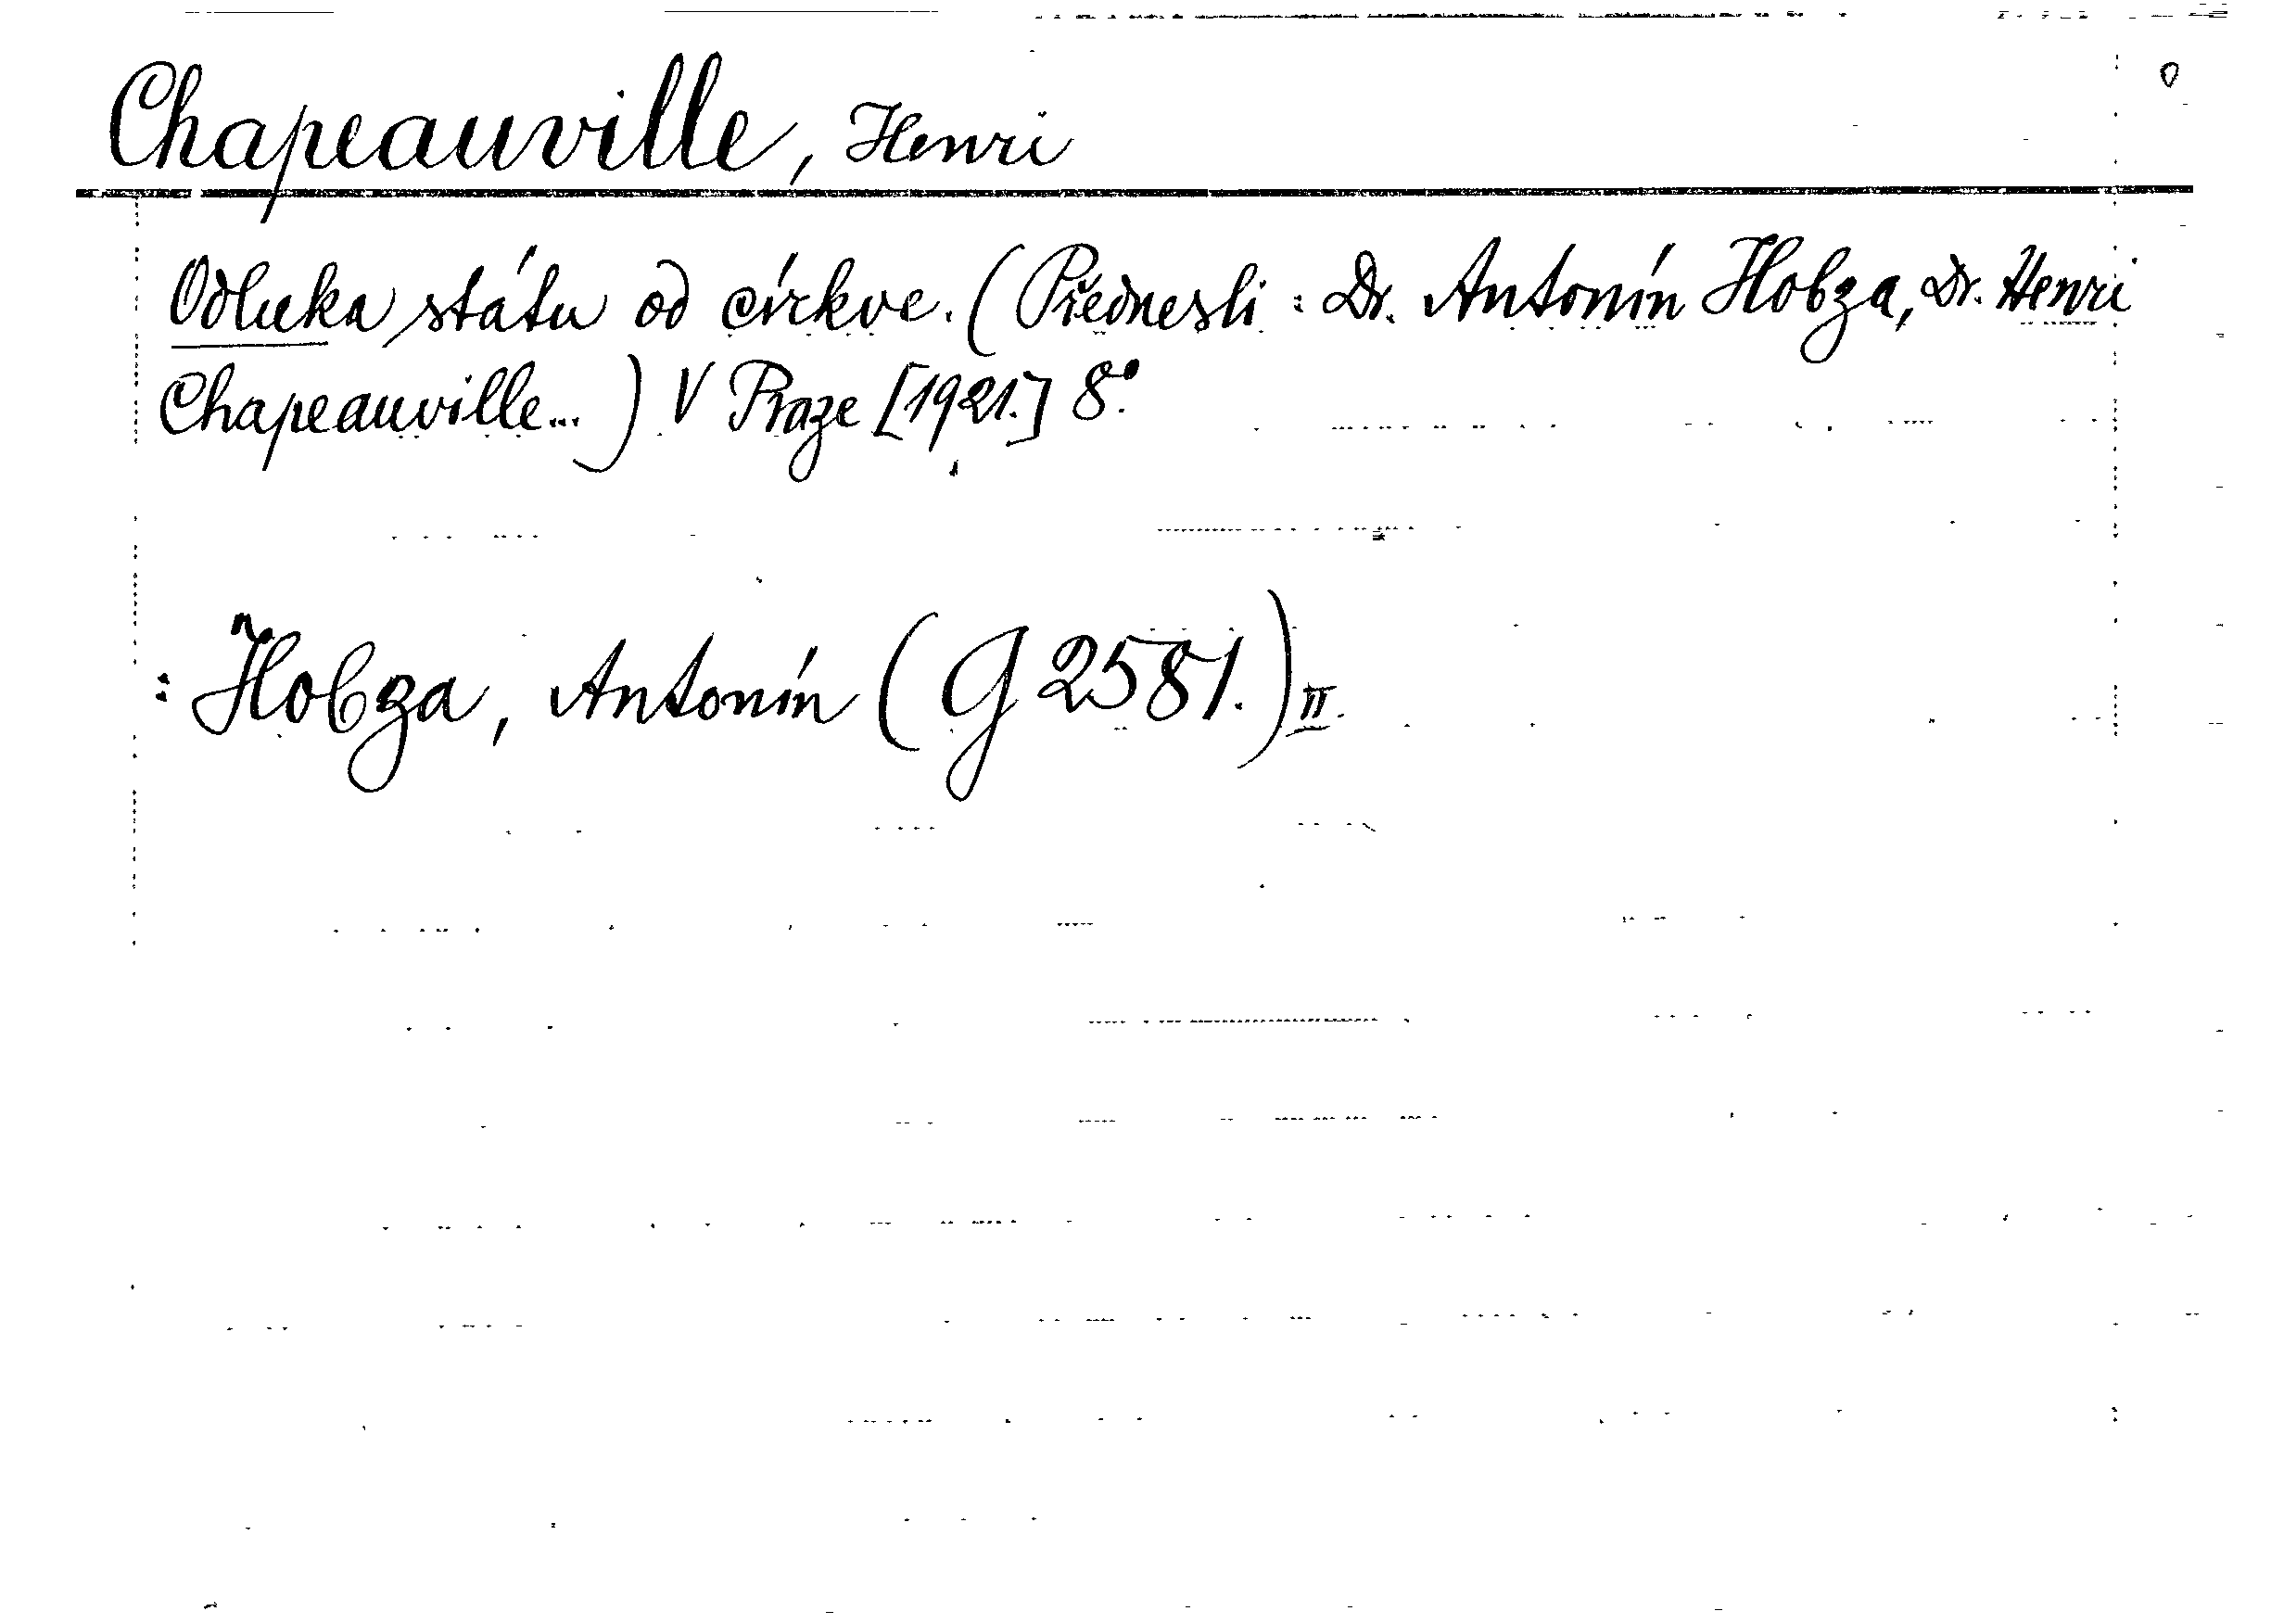 Chapeauville, Henri
Odluka státu od církve. (Přednesli: Dr. Antonín Hobza, Dr. Henri
Chapeauville...) V Praze [1921.] 8°.
: Hobza, Antonín (G 2581.) II.